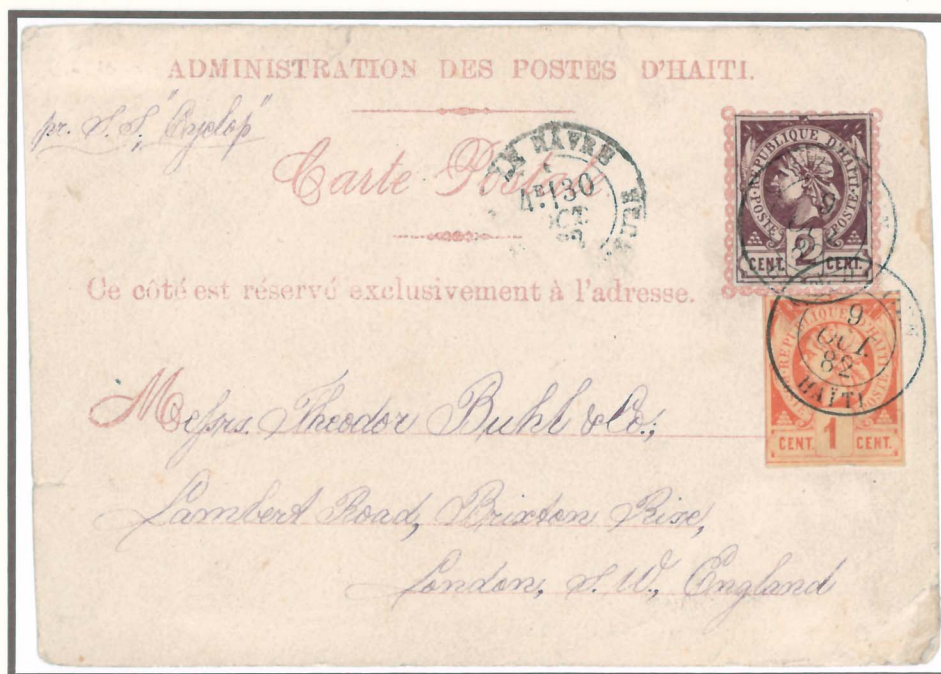 ADMINISTRATION DES POSTES D'HAITI.
pr. S.S.,
Carte Postale
LE HAVRE
4E 30
OCT
82
REPUBLIQUE D'HAITI
POSTE POSTE
CENT. 2 CENT.
Ce côté est réservé exclusivement à l'adresse.
REPUBLIQUE D'HAITI
POSTE POSTE
CENT. 1 CENT.
9
OCT.
82
HAITI
Messrs. Theodor Buhl & Co.,
Lambert Road, Brixton Rise,
London, S.W., England